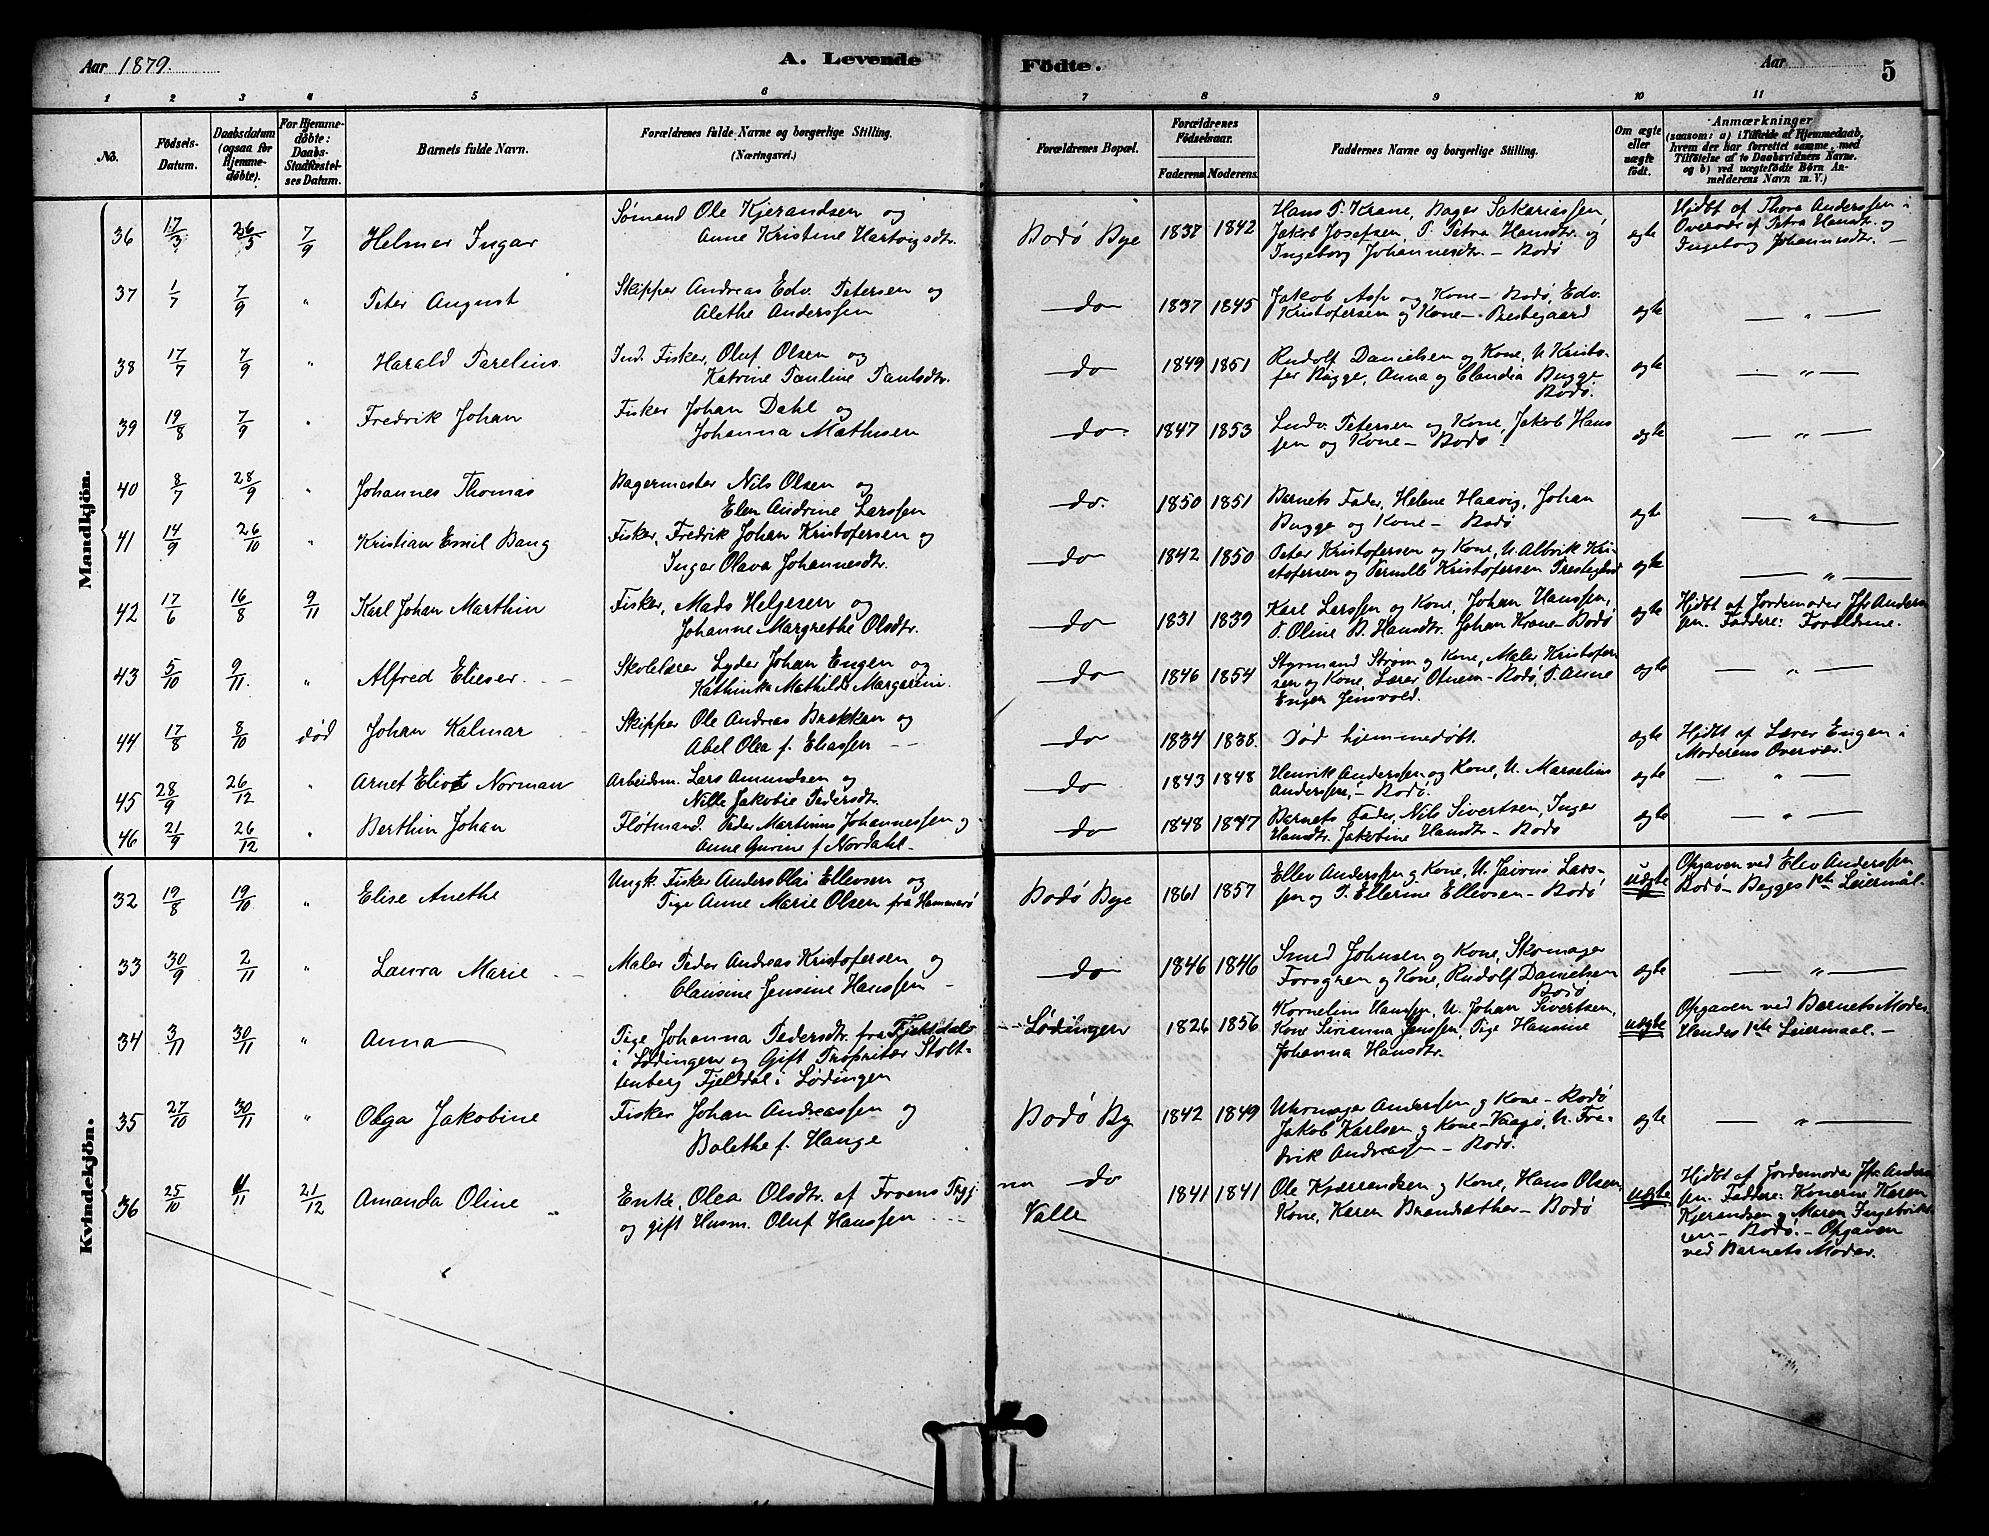 Aar 1879.
A. Levende Födte.
Aar
5
1 2 3 4 5 6 7 8 9 10 11
No.
Födsels-Datum.
Daabsdatum (ogsaa for Hjemme-döbte).
For Hjemme-döbte: Daabs-Stadfæstel-ses Datum.
Barnets fulde Navn.
Forældrenes fulde Navne og borgerlige Stilling. (Næringsvei.)
Forældrenes Bopæl.
Forældrenes Födselsaar. Faderens. Moderens.
Faddernes Navne og borgerlige Stilling.
Om ægte eller uægte födt.
Anmærkninger
(saasom: a) i Tilfælde af Hjemmedaab,
hvem der har forrettet samme, med
Tilföielse af to Daabsvidners Navne.
og b) ved uægtefödte Börn An-
melderens Navn m. V.)
Mandkjön.
36 17/3 26/3 7/9 Helmer Ingar
Sømand Ole Kjerandsen og
Anne Kristine Hartvigsdtr.
Bodø Bye 1837 1842
Hans P. Krane, Bager Sakariassen,
Jakob Josefsen, P. Petra Hansdtr. og
Ingeborg Johannesdtr. – Bodø
ægte
Hjdbt af Thora Anderssen i
Overvær af Petra Hansdtr. og
Ingeborg Johannesdtr. –
37 1/7 7/9 " Peter August
Skipper Andreas Edv. Petersen og
Alethe Anderssen
do 1837 1845
Jakob Asp og Kone – Bodø, Edv.
Kristofersen og Kone – Prestegaard
ægte — " —
38 17/7 7/9 " Harald Parelius
Ind. Fisker, Oluf Olsen og
Katrine Pauline Paulsdtr.
do 1849 1851
Rudolf Danielsen og Kone, U. Kristo-
fer Bugge, Anna og Claudia Bugge
Bodø.
ægte — " —
39 19/8 7/9 " Fredrik Johan
Fisker Johan Dahl og
Johanna Mathisen
do 1847 1853
Ludv. Petersen og Kone, Jakob Hans
sen og Kone – Bodø.
ægte — " —
40 8/7 28/9 " Johannes Thomas
Bagermester Nils Olsen og
Elen Andrine Larssen
do. 1850 1851
Barnets Fader, Helene Haavig, Johan
Bugge og Kone – Bodø
ægte — " —
41 14/9 26/10 " Kristian Emil Bang
Fisker, Fredrik Johan Kristofersen og
Inger Olava Johannesdtr.
do 1842 1850
Peter Kristofersen og Kone, U. Albrik Kri-
stofersen og Pernille Kristofersen Prestegaard
ægte — " —
42 17/6 16/8 9/11 Karl Johan Marthin
Fisker, Mads Helgesen og
Johanne Margrethe Olsdtr.
do 1831 1839
Karl Larssen og Kone, Johan Hanssen,
P. Oline B. Hansdtr. Johan Krane – Bodø
ægte
Hjdbt af Jordemoder Jfr. Anders
sen. Faddere: Forældrene.
43 5/10 9/11. " Alfred Elieser
Skolelærer Lyder Johan Engen og
Kathinka Mathilde Margareni.
do 1846 1854
Styrmand Strøm og Kone, Maler Kristofer
sen og Kone, Lærer Otnem – Bodø, P. Anne
Engen Jensvold.
ægte — " —
44 17/8 8/10 død Johan Kalmar
Skipper Ole Andreas Brækkan og
Abel Olea f. Eliassen
do 1834 1838.
Død hjemmedøbt.
ægte
Hjdbt af Lærer Engen i
Moderens Overvær.
45 28/9 26/12 " Arnet Eliot Norman
Arbeidsm. Lars Amundsen og
Nille Jakobie Pedersdtr.
do 1843 1848
Henrik Anderssen og Kone, U. Marselius
Anderssen, – Bodø.
ægte — " —
46 21/9 26/12 " Berthin Johan
Fløtmand. Peder Martinus Johannessen og
Anne Gurine f Nordahl –
do 1848 1847
Barnets Fader, Nils Sivertsen, Inger
Hansdtr. Jakobine Hansdtr – Bodø
ægte — " —
Kvindekjön.
32 19/8 19/10 " Elise Anethe
Ungk. Fisker Anders Olai Ellevsen og
Pige Anne Marie Olsen fra Hammerø
Bodø Bye 1861 1857
Ellev Anderssen og Kone, U. Jairus Lars-
sen og P. Ellerine Ellevsen – Bodø
uægte
Opgaven ved Elev Anderssen
Bodø – Begges 1ste Leiermål.
33 30/9 2/11 " Laura Marie
Maler Peder Andreas Kristofersen og
Clausine Jensine Hanssen –
do 1846 1846
Smed Johnsen og Kone, Skomager
Forsgren og Kone, Rudolf Danielsen
Bodø
ægte — " —
34 3/11 30/11 " Anna
Pige Johanna Pedersdtr. fra Fjeldal
i Lødingen og Gift Proprietær Stolt-
tenberg Fjeldal i Lødingen
Lødingen 1826 1856
Kornelius Hanssen, U. Johan Sivertsen,
Kone Sirianna Jenssen, Pige Hansine
Johanna Hansdtr.
uægte
Opgaven ved Barnets Moder
Hendes 1ste Leiermaal. –
35 27/10 30/11 " Olga Jakobine
Fisker Johan Andreassen og
Bolethe f. Hauge
Bodø By 1842 1849
Uhrmager Anderssen og Kone – Bodø
Jakob Karlsen og Kone – Vaagø, U. Fre-
drik Andreassen – Bodø.
ægte — " —
36 25/10 4/11 21/12 Amanda Oline
Enke, Olea Olsdtr. af
og gift Husm. Oluf Hanssen
do
Valle
1841 1841
Ole Kjærrandsen og Kone, Hans Olsen,
Kone, Karen Brandsæther – Bodø
uægte
Hjdbt af Jordemoder Jfr Anders
sen. Faddere: Konerne Karen
Kjerandsen og Maren Ingebrikt
sen – Bodø. – Opgaven
ved Barnets Moder.